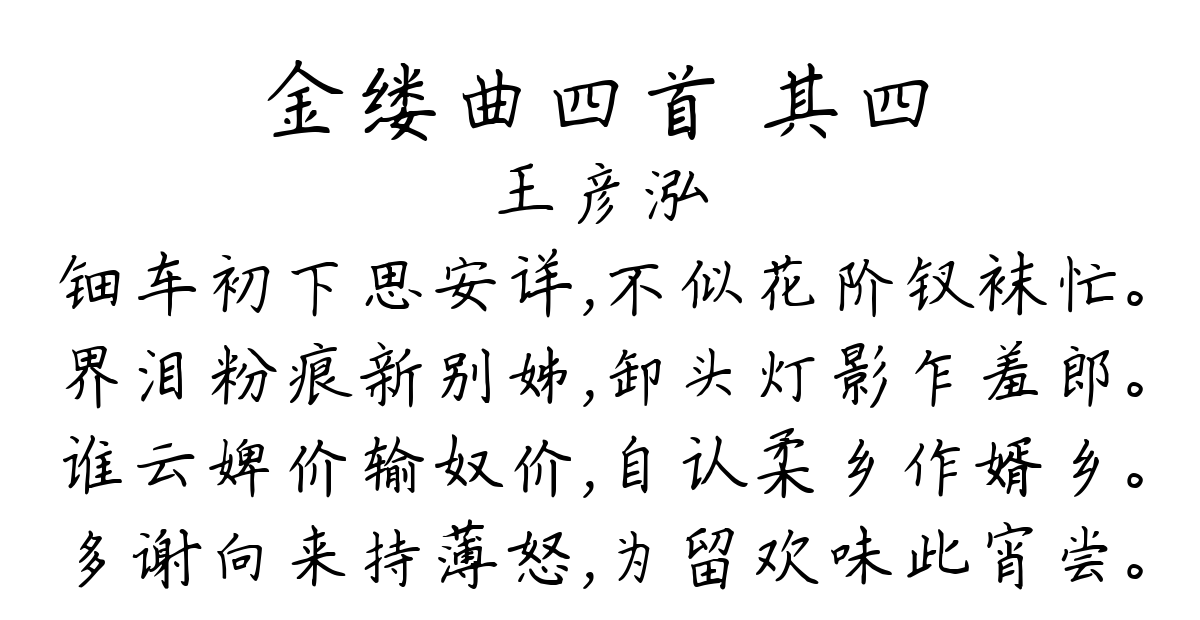 金缕曲四首 其四
王彦泓
钿车初下思安详,不似花阶钗袜忙。
界泪粉痕新别姊,卸头灯影乍羞郎。
谁云婢价输奴价,自认柔乡作婿乡。
多谢向来持薄怒,为留欢味此宵尝。